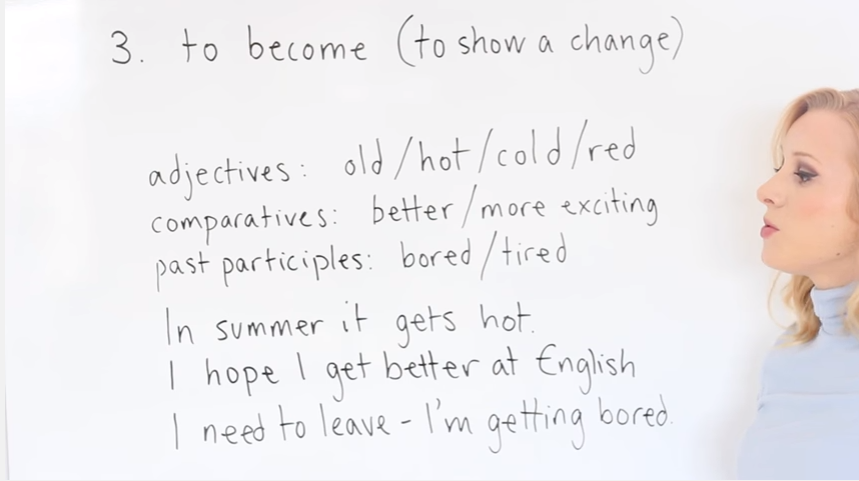 3. to become (to show a change)
adjectives: old/hot/cold/red
comparatives: better/more exciting
past participles: bored/tired
In summer it gets hot.
I hope I get better at English
I need to leave - I'm getting bored.